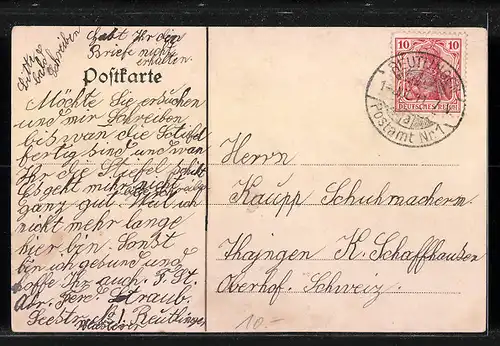 Bitte
bald
schreiben
habt Ihr den
Briefe nicht
erhalten.
Postkarte
Möchte Sie ersuchen
und mir Schreiben
bis wan die Stifel
fertig sind und wan
Ihr die Stiefel schikt
Es geht mir nicht
ganz gut. Weil ich
nicht mehr lange
hier bin. Sonst
bin ich gesund und
hoffe Ihr auch. J. St.
Adr. Straub.
Seestraße 1 Reutlingen
10 10
DEUTSCHES REICH
REUTLINGEN
Postamt Nr. 1
Herrn
Kaupp Schuhmacherm.
Thajngen K. Schaffhausen
Oberhof. Schweiz.
10.-